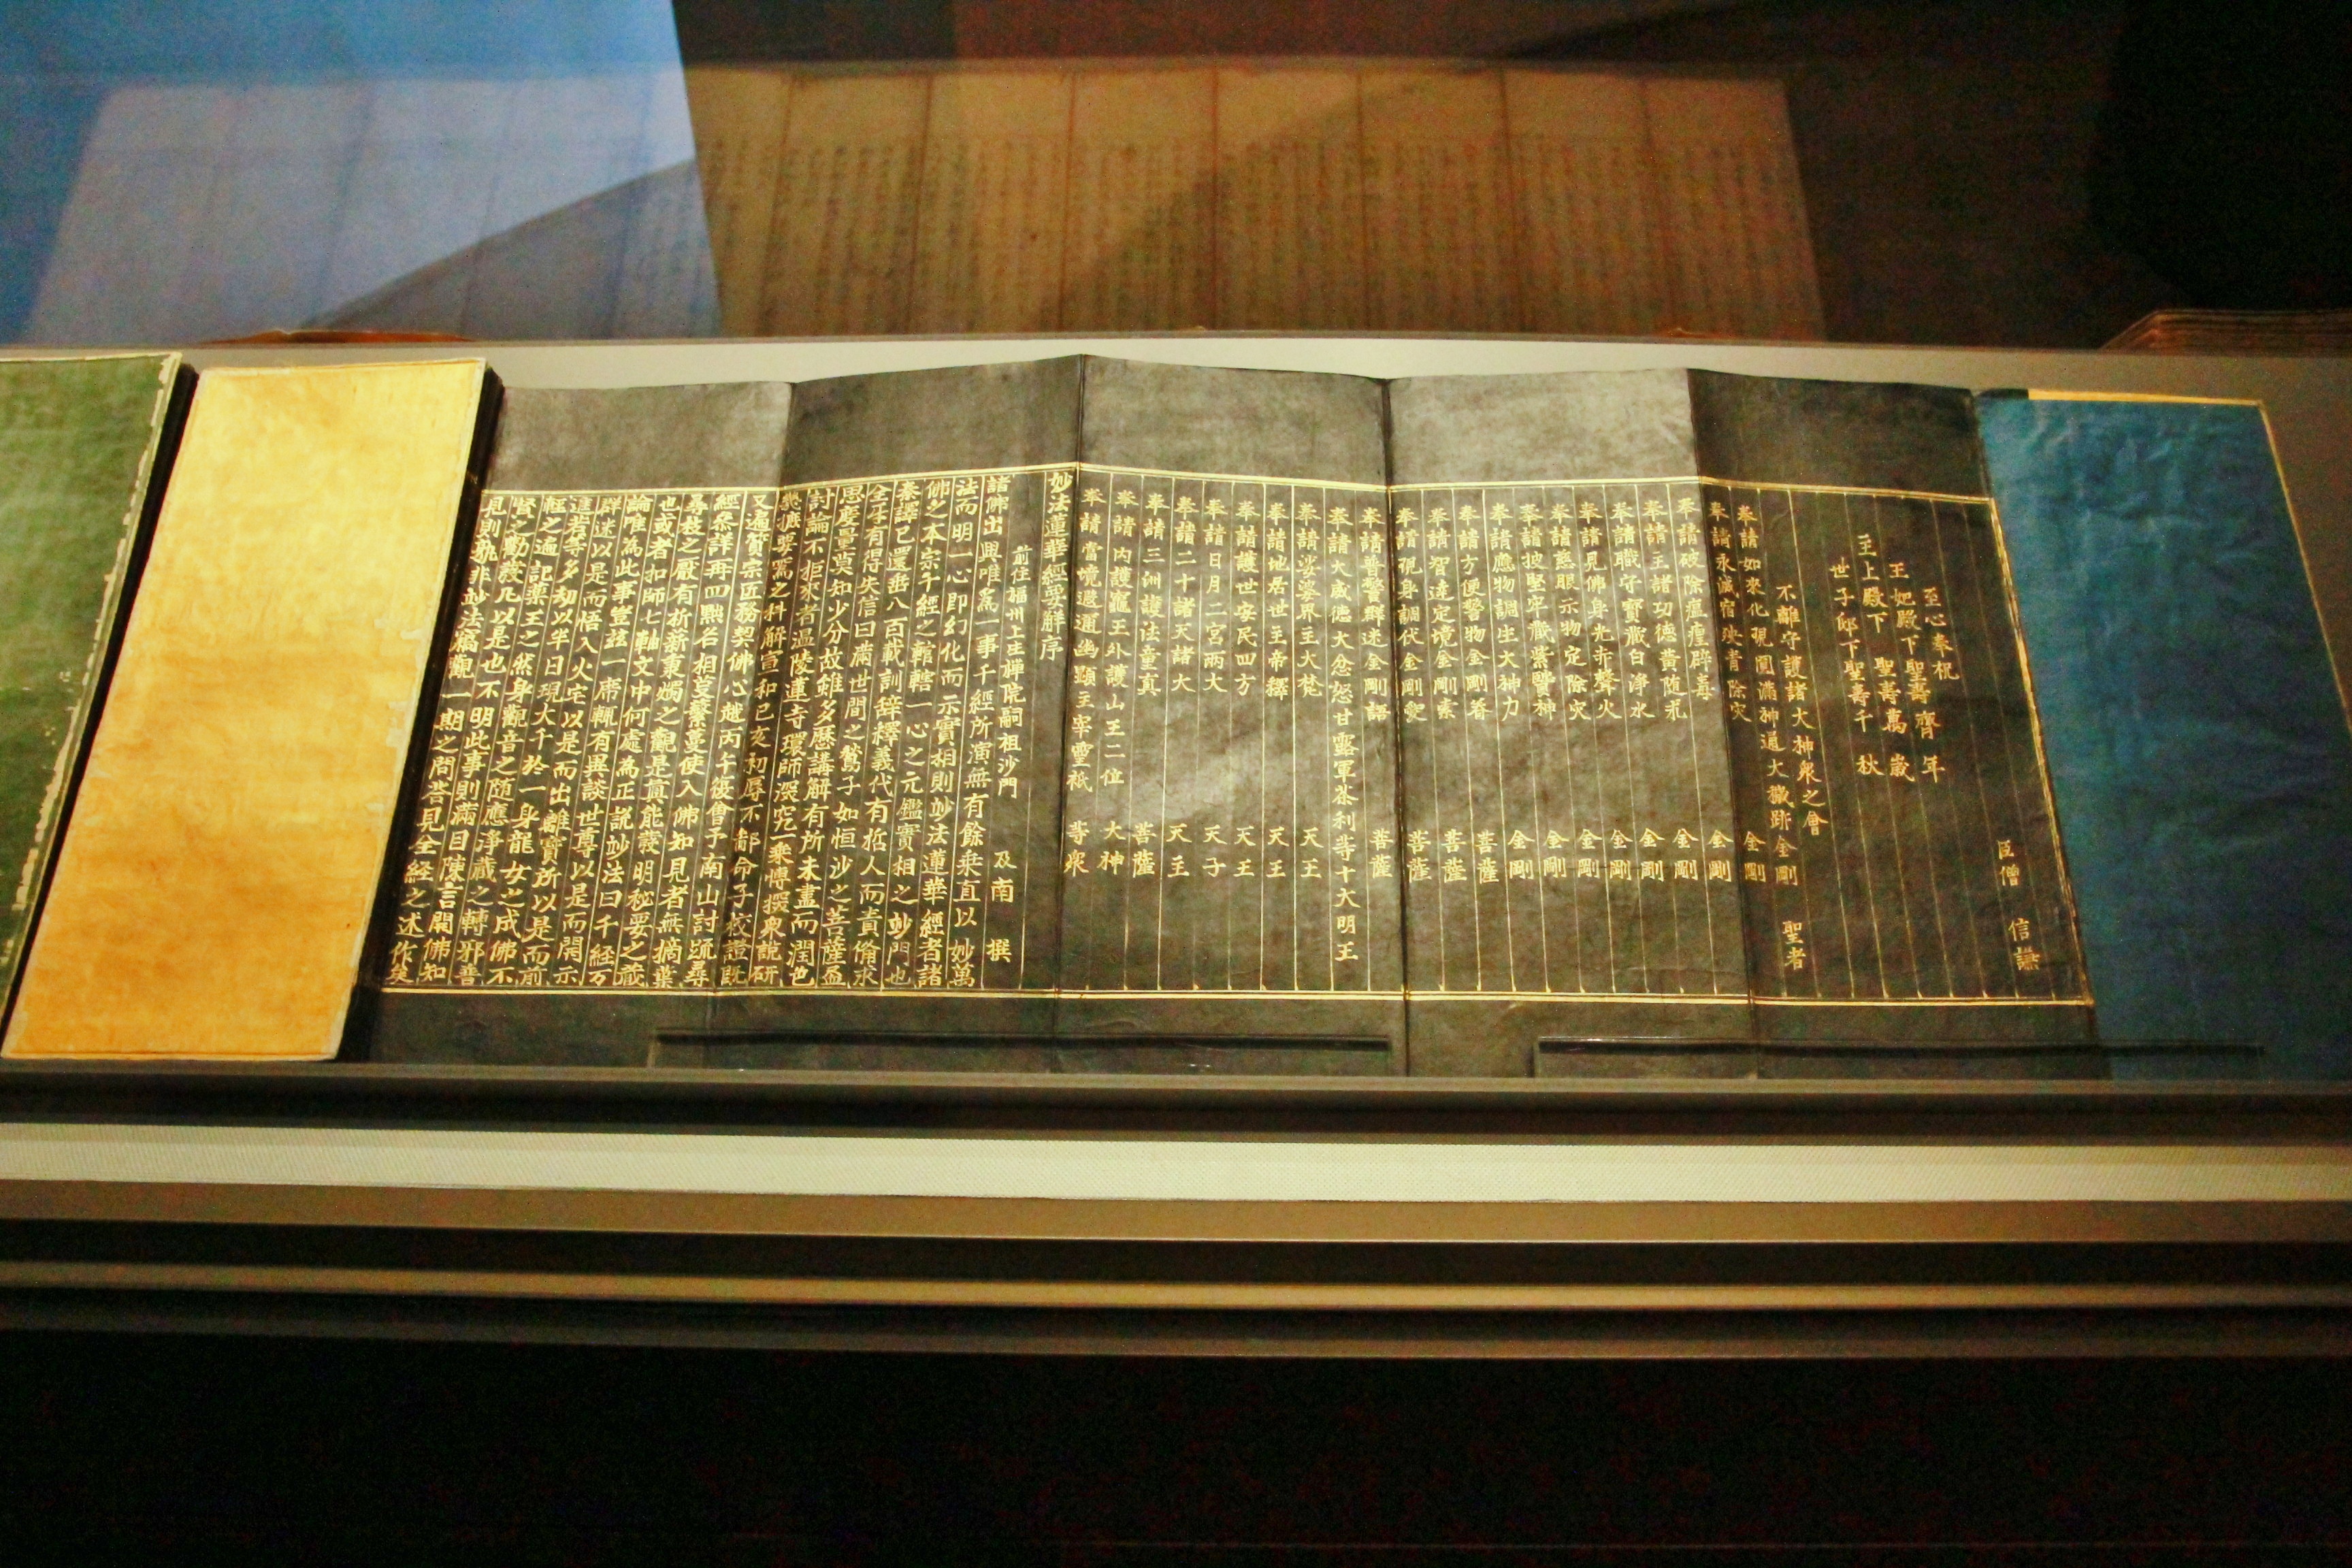 臣僧 信謙
至心奉祝
王妃殿下聖壽齊年
主上殿下 聖壽萬歲
世子邸下聖壽千秋
不離守護諸大神衆之會 聖者
奉請如來化現圓滿神通大穢跡金剛
奉請永滅宿殃青除灾 金剛
奉請破除瘟㾮辟毒 金剛
奉請主諸功德黃随求 金剛
奉請職守寶藏白浄水 金剛
奉請見佛身光赤聲火 金剛
奉請慈眼示物定除灾 金剛
奉請披堅牢藏紫賢神 金剛
奉請應物調生大神力 金剛
奉請方便警物金剛眷 菩薩
奉請智達定境金剛索 菩薩
奉請現身調伏金剛愛 菩薩
奉請善警群迷金剛語 菩薩
奉請大威德大忿怒甘露軍茶利等十大明王
奉請娑婆界主大梵 天王
奉請地居世主帝釋 天王
奉請護世安民四方 天王
奉請日月二宮兩大 天子
奉請二十諸天諸大 天王
奉請三洲護法童真 菩薩
奉請內護竈王外護山王二位 大神
奉請當境遐邇幽顯主宰靈祇 等衆
妙法蓮華經要解序
前住福州上生禅院嗣祖沙門 及南 撰
諸佛出興唯爲一事千經所演無有餘乗直以妙萬
法而明一心即幻化而示實相則妙法蓮華經者諸
佛之本宗千經之輨轄一心之元鑑實相之妙門也
秦譯已還垂八百載訓辞釋義代有哲人而責備求
全互有得失信曰滿世間之鶖子如恒沙之菩薩盡
思度量莫知少分故雖多歷講解有所未盡而潤色
討論不拒來者溫陵蓮寺環師深究乗博撰衆說研
幾摭要爲之科解宣和己亥初辱不鄙命予校證旣
又遍質宗匠務契佛心越丙午復會予南山討䟽尋
經叅詳再四㸃名相芟繁蔓使入佛知見者無摘葉
尋枝之厭有析薪秉燭之觀是眞能發明秘要之藏
也或者扣師七軸文中何處為正說妙法曰千經万
論唯為此事豈玆一席輒有異談世尊以是而開示
群迷以是而悟入火宅以是而出離寶所以是而前
進若等多劫以半日現大千於一身龍女之成佛不
輕之遍記藥王之然身觀音之随應浄藏之轉邪普
賢之勸發凡以是也不明此事則滿目陳言開佛知
見則孰非妙法竊觀一期之問荅見全經之述作矣